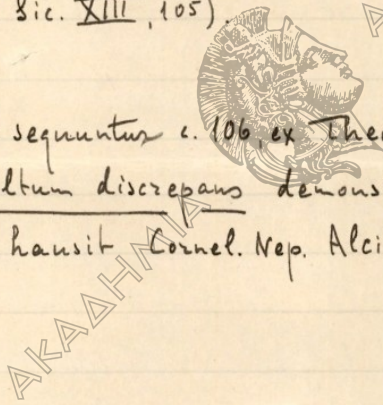 Sic. XIII, 105).
sequuntur c. 106, ex Theo
ltum discrepans demons
hausit Cornel. Nep. Alci
ΑΚΑΔΗΜΙΑ